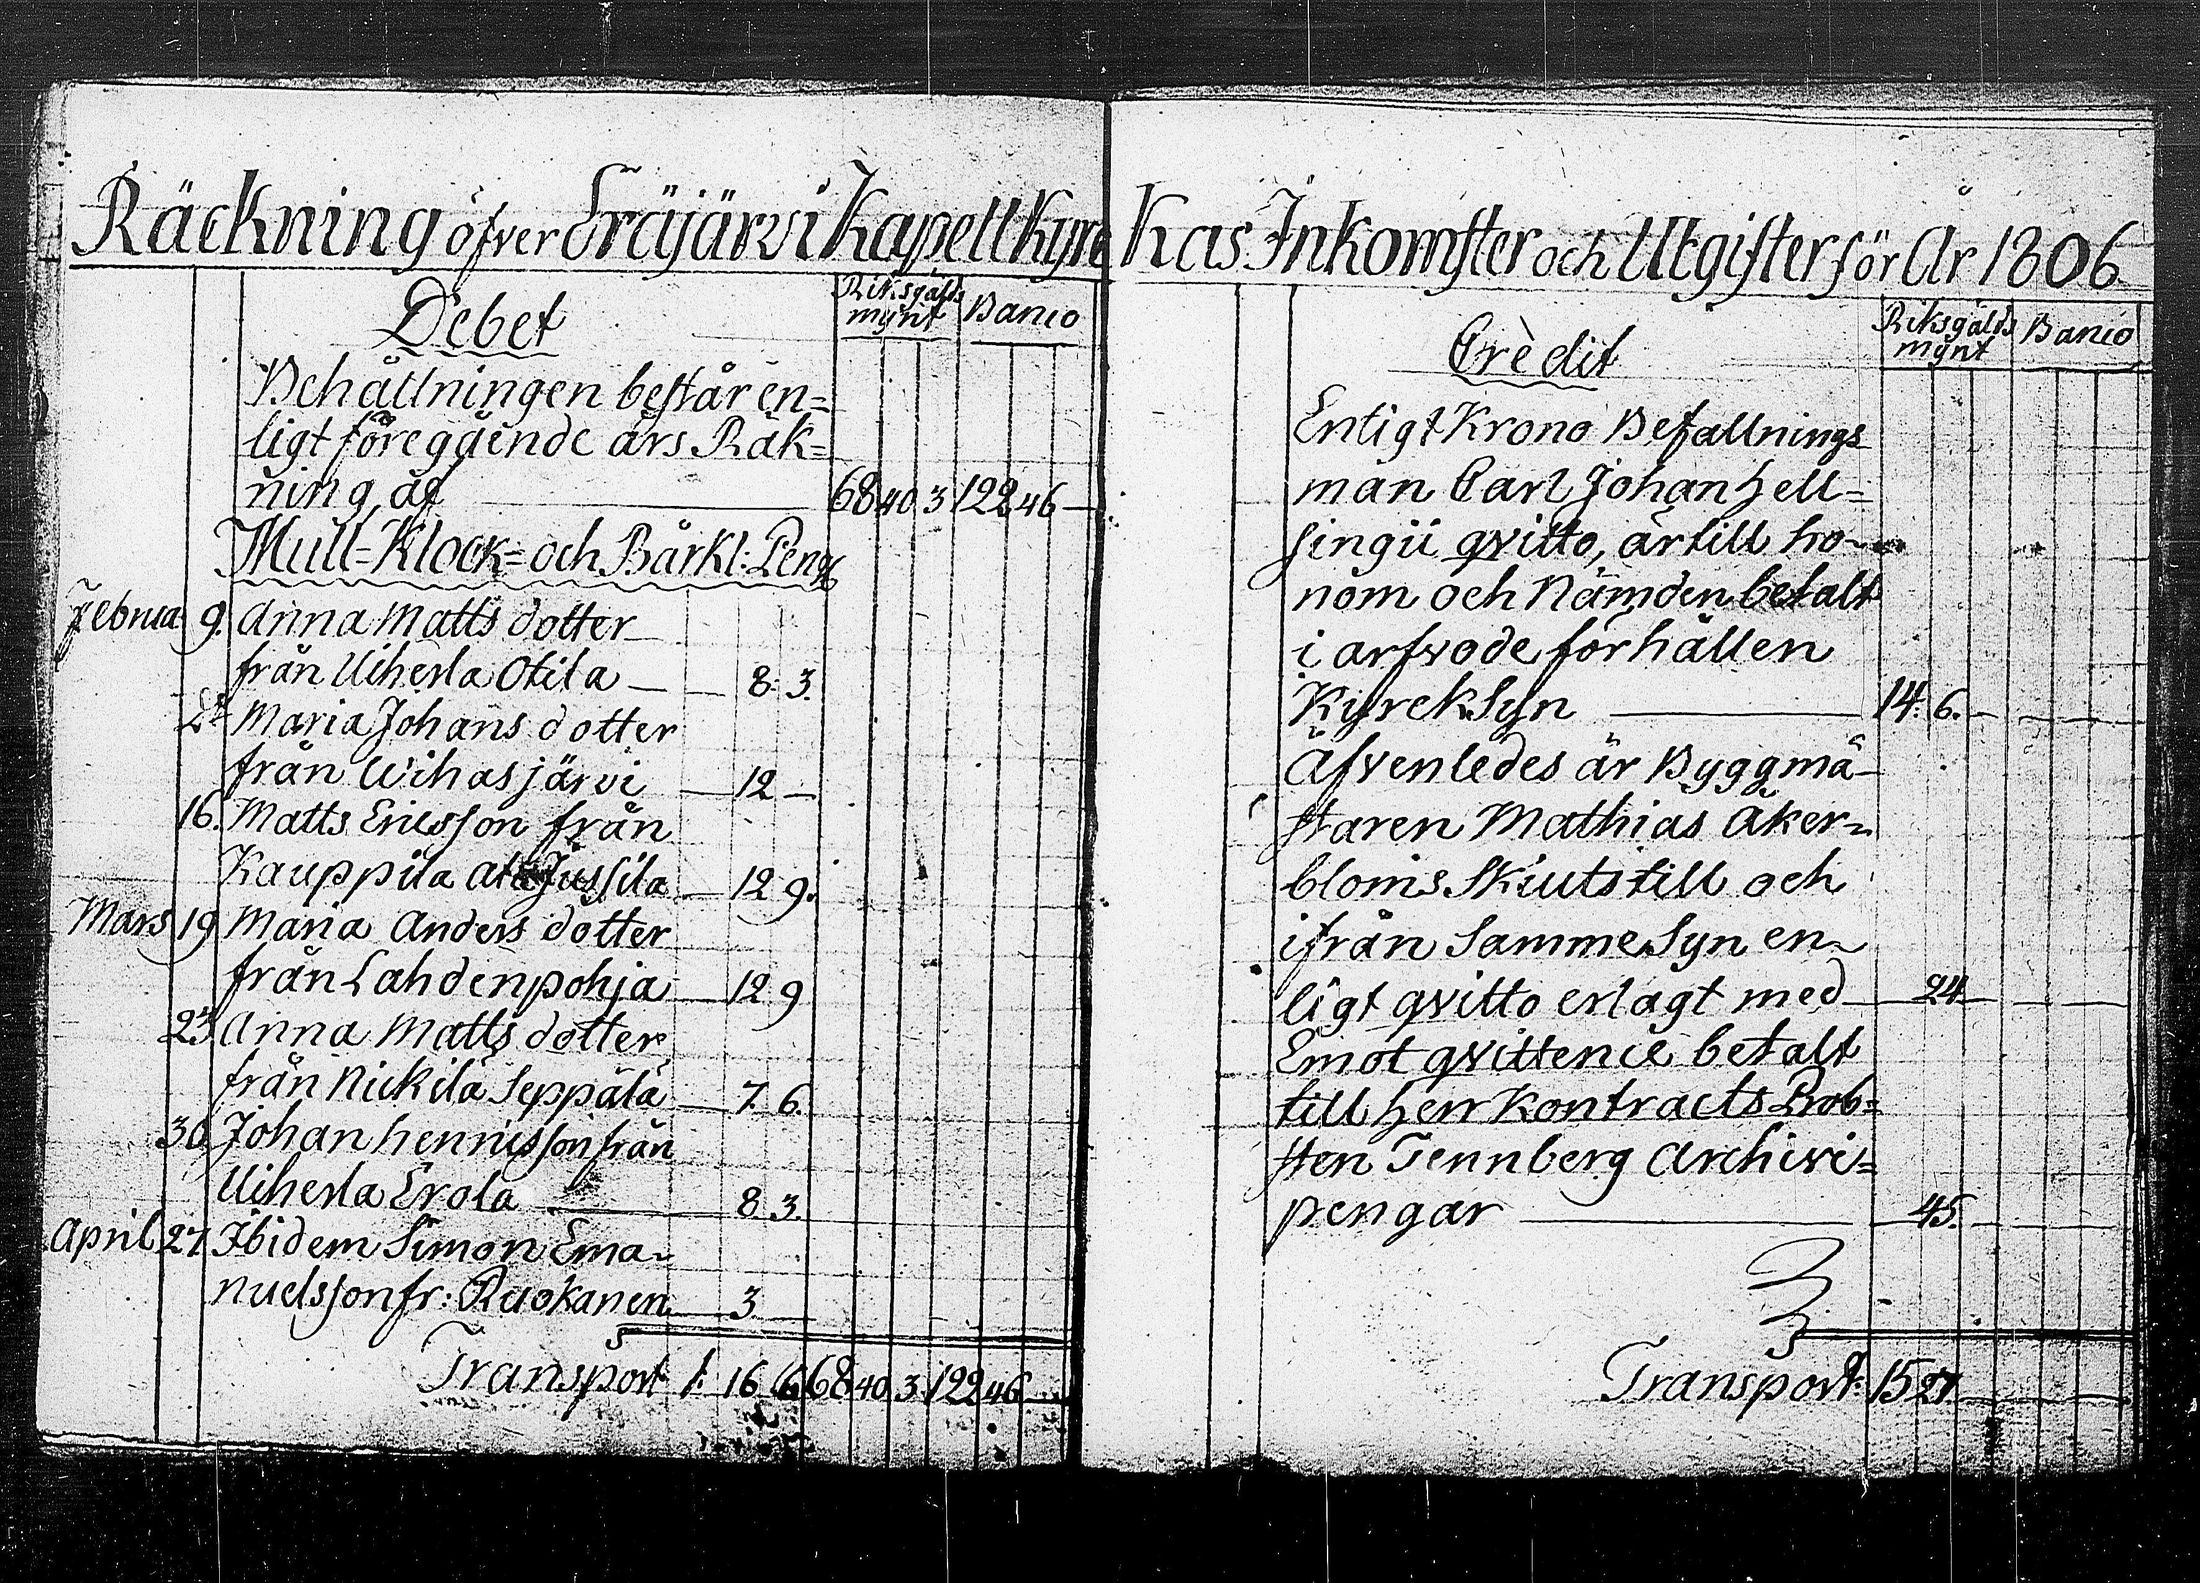 Räckning öfver Eräjärvi Kapell Kyrc
Debet
Riksgälds mynt Banco
Behållningen består en=
ligt föregående års Räk=
ning, af 68 40 3 122 46 —
Mull= Klock= och Bårkl: Peng
Februa 9. Anna Matts dotter
från Uiherla Otila — 8: 3.
Maria Johans dotter
från Wihasjärvi — 12 —
16. Matts Ericsson från
Kauppila Jussila — 12 9.
Mars 19 Maria Anders dotter
från Lahdenpohja — 12 9
23 Anna Matts dotter
från Nickilä Seppälä — 7. 6.
30 Johan Hennicsson från
Uiherla Erola — 8. 3.
April 27 Ibidem Simon Ema=
nuelsson fr: Ruokanen — 3.
Transport 1: 16 6 68 40 3 122 46 —
Kas Inkomster och Utgifter för År 1806
Credit
Riksgälds mynt Banco
Enligt Krono Befallnings
man Carl Johan Hell=
singii qvitto, är till ho=
nom och Nämden betalt
i arfvode för hållen
Kyrck Syn — 14. 6. —
Äfvenledes är Byggmä=
staren Mathias Åker=
bloms Skiuts till och
ifrån Samme Syn en=
ligt qvitto erlagt med — 24 —
Emot qvittence betalt
till Herr Kontracts Prob=
sten Tennberg Archivi=
pengar — 45. —
Transport: 15 27. —